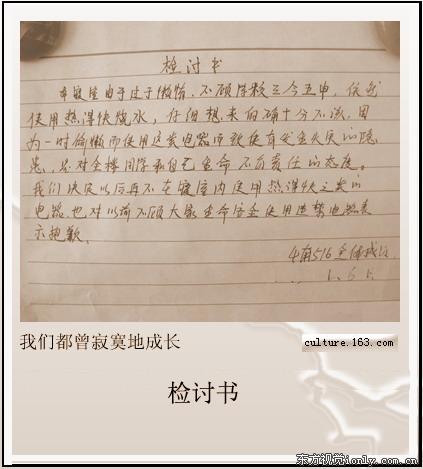 检讨书
本寝室由于过于懒惰，不顾学校三令五申，依然
使用热得快烧水，仔细想来的确十分不该，因
为一时偷懒而使用这类电器而致使有发生火灾的隐
患，是对全楼同学和自己生命不负责任的态度。
我们决定以后再不在寝室内使用热得快之类的
电器，也对以前不顾大家生命安全使用违禁电器表
示抱歉。
南516全体成员
我们都曾寂寞地成长
culture.163.com
检讨书
东方视觉ionly.com.cn